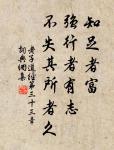 知足者富
強行者有志
不失其所者久
老子道經第三十三章
詞典網集